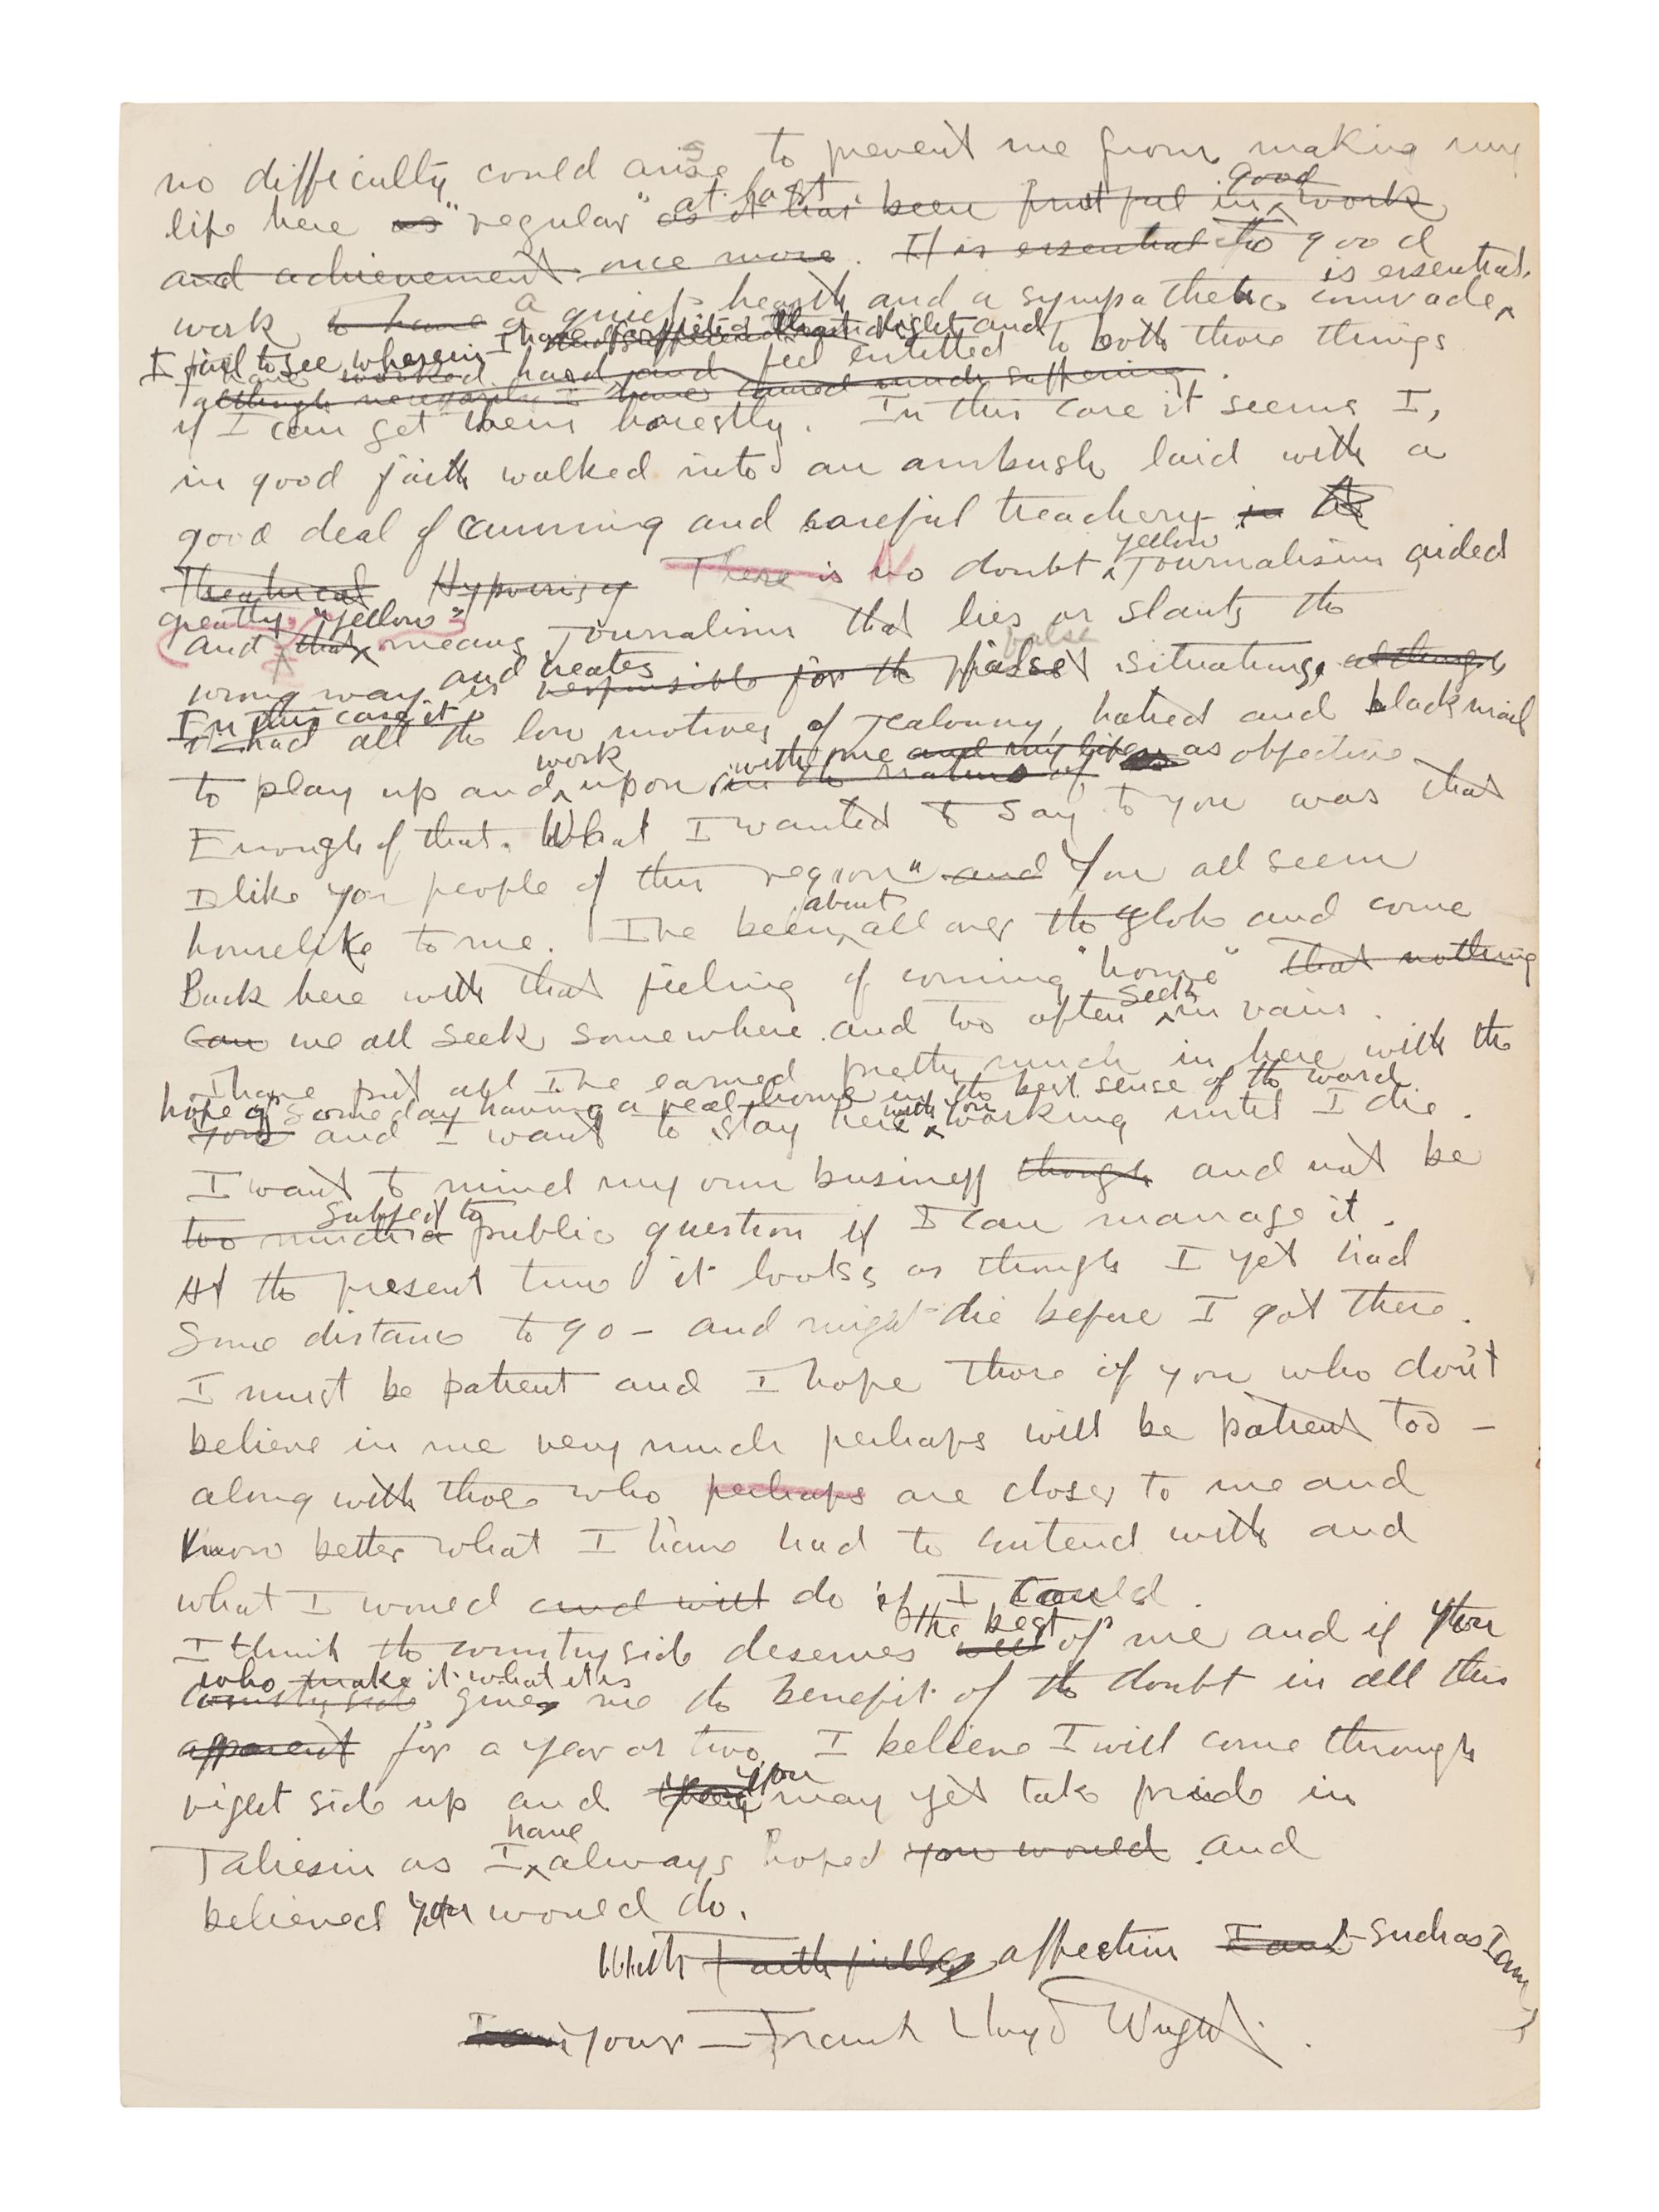 no difficulty could arise to prevent me from making my
good
life here as "regular" at last as it has been fruitful in work
and achievement once more. It is essential to good
is essential.
work to have a quiet hearth and a sympathetic comrade
I fail to see wherein I have forfeited that right and
I have worked hard and feel entitled to both those things
although necessarily I have caused much suffering.
if I can get them honestly. In this case it seems I,
in good faith walked into an ambush laid with a
good deal of cunning and careful treachery in the
yellow
Theatrical Hypocrisy There is no doubt Journalism aided
greatly, "yellow"
and that means Journalism that lies or slants the
false
and creates
wrong way is responsible for the false situations, although
In this case it
it had all the low motives of jealousy, hatred and blackmail
work with me and my life as objective
to play up and upon in the nature of
Enough of that. What I wanted to say to you was that
I like you people of this region" and You all seem
about
homelike to me. I've been all over the globe and come
Back here with that feeling of coming "home" that nothing
seek
can we all seek somewhere and too often in vain.
I have put all I've earned pretty much in here with the
hope of someday having a real home in the best sense of the word.
with you
you and I want to stay here working until I die.
I want to mind my own business though and not be
subject to
too much a public question if I can manage it.
At the present time it looks as though I yet had
Some distance to go – and might die before I got there.
I must be patient and I hope those of you who don't
believe in me very much perhaps will be patient too –
along with those who perhaps are closer to me and
Know better what I have had to contend with and
what I would and will do if I could.
the best
I think the countryside deserves well of me and if you
who make it what it is
countryside gives me the benefit of the doubt in all this
apparent for a year or two I believe I will come through
you
right side up and they may yet take pride in
have
Taliesin as I always hoped you would and
believed you would do.
With Faithfully affection I am – Such as I am,
I am yours – Frank Lloyd Wright.